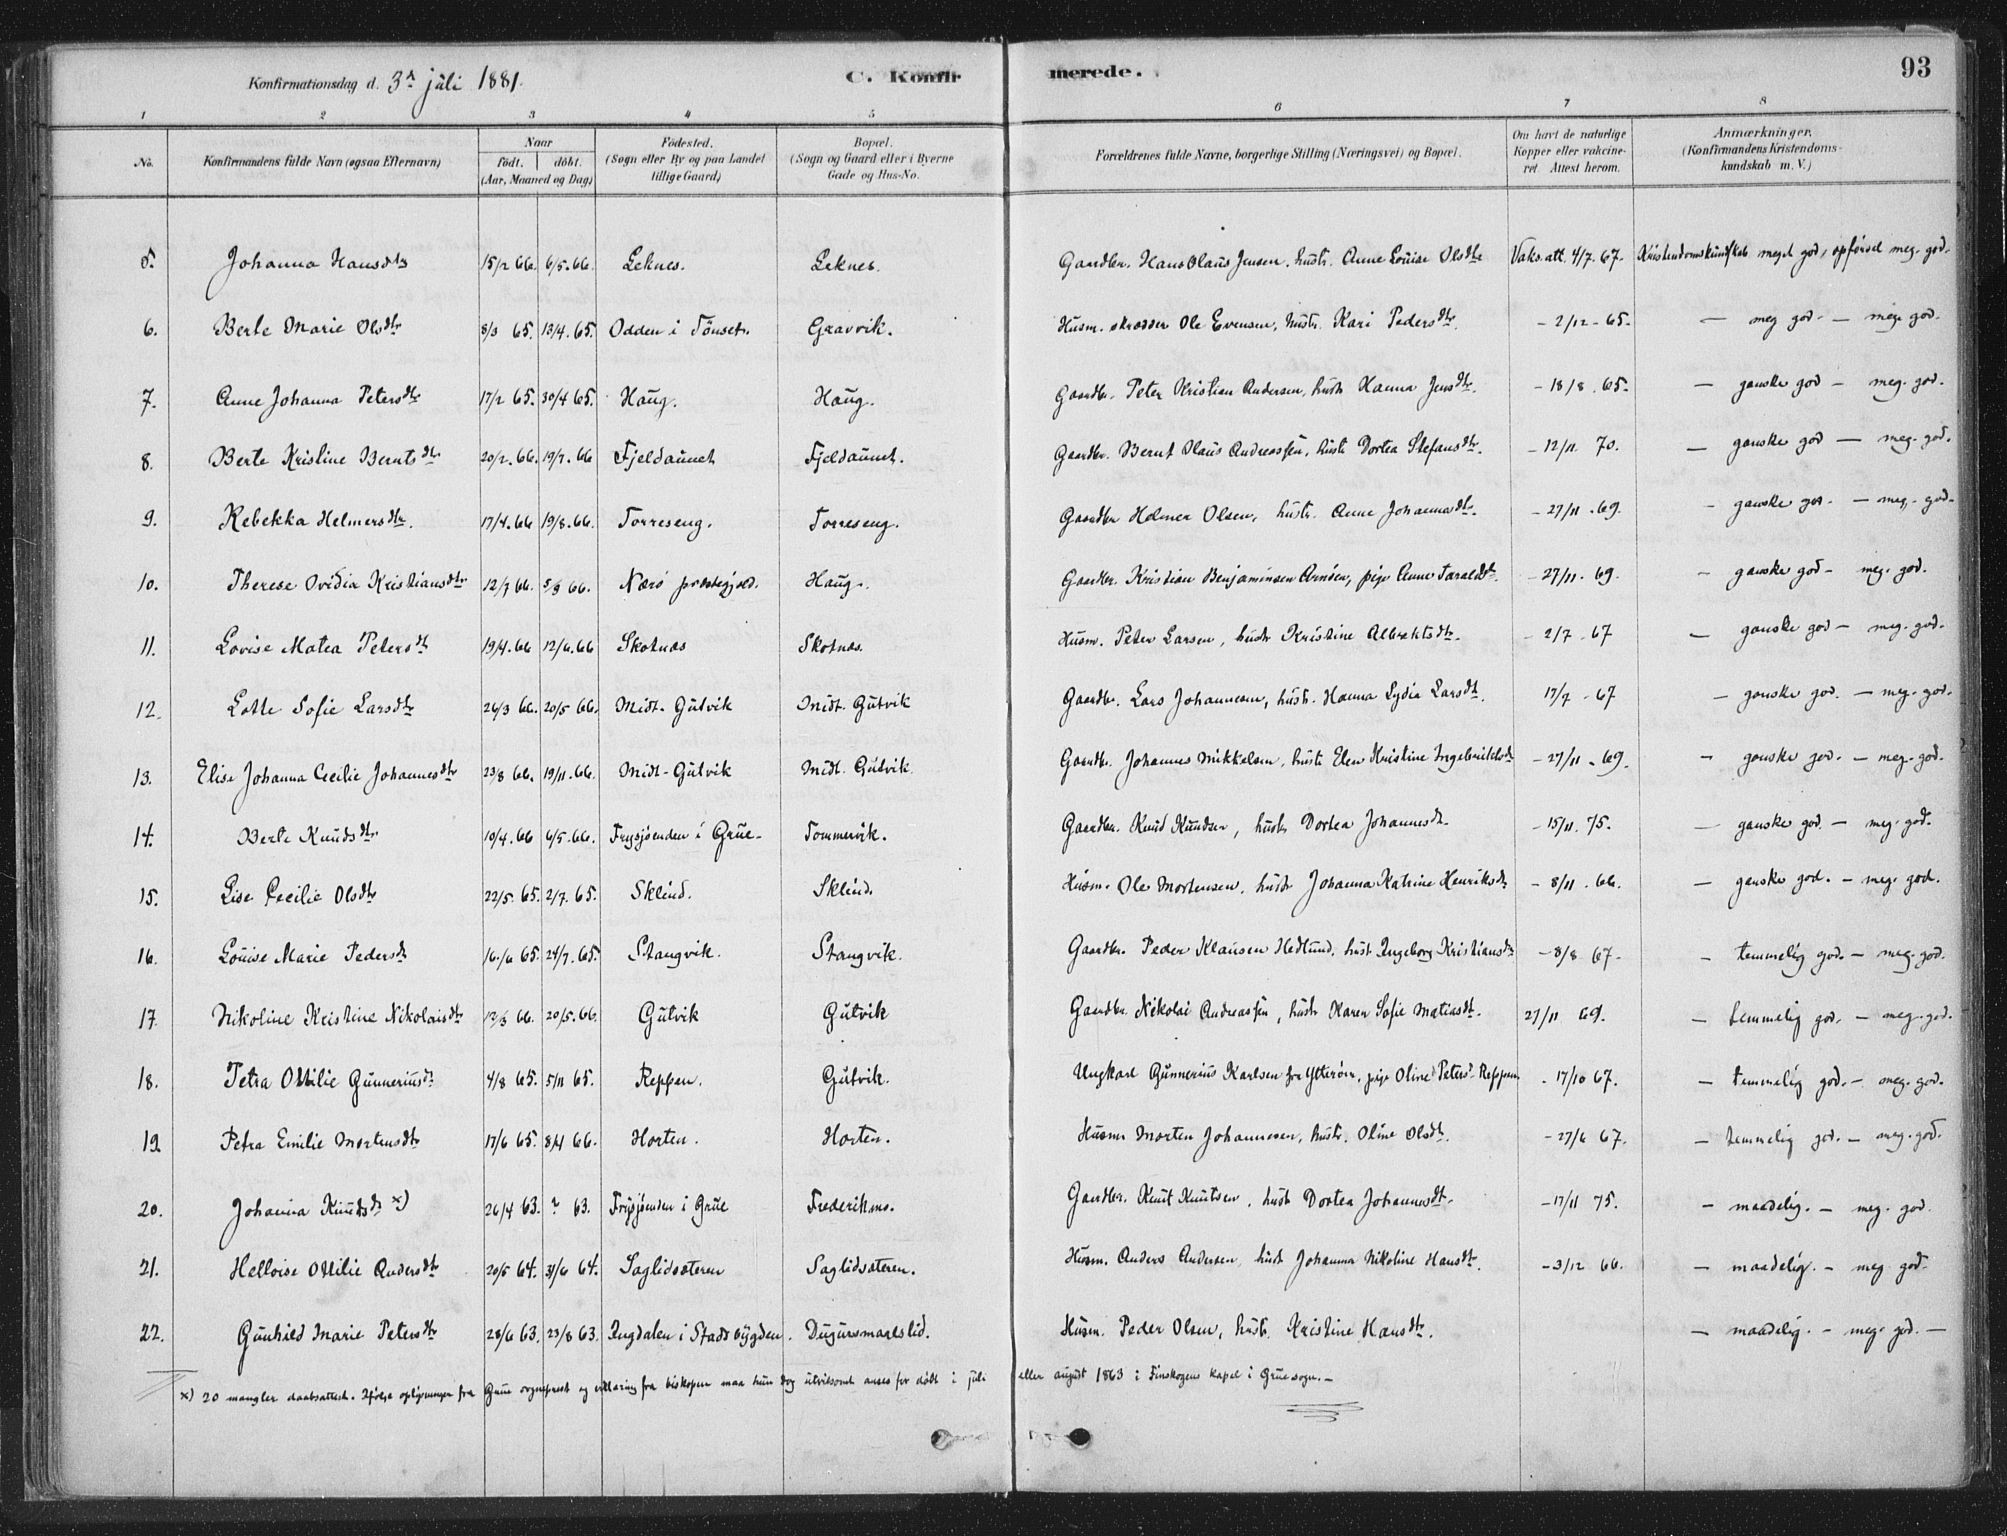 Konfirmationsdag d. 3die juli 1881. C. Konfirmerede. 93
1 2 3 4 5 6 7 8
No. Konfirmandens fulde Navn (ogsaa Efternavn) Naar födt. döbt. (Aar, Maaned og Dag) Födested. (Sogn eller By og paa Landet tillige Gaard) Bopæl. (Sogn og Gaard eller i Byerne Gade og Hus-No. Forældrenes fulde Navne, borgerlige Stilling (Næringsvei) og Bopæl. Om havt de naturlige Kopper eller vakcineret. Attest herom. Anmærkninger. (Konfirmandens Kristendomskundskab m. V.)
5. Johanna Hansdtr 15/2 66. 6/5. 66. Leknes. Leknes. Gaardbr. Hans Olaus Jensen, hustr. Anne Louise Olsdtr Vaks.att. 4/7. 67. Kristendomskundskab meget god, opførsel meg. god.
6. Berte Marie Olsdtr 8/3 65. 13/4. 65. Odden i Tönset. Gravvik. Husm. skrædder Ole Evensen, hustr. Kari Pedersdtr. - 2/12 - 65. — meg god. — meg. god.
7. Anne Johanna Petersdtr 17/2 65. 30/4 65. Haug. Haug. Gaardbr. Peter Kristian Andersen, hustr Hanna Jensdtr. - 18/8. 65. — ganske god — meg. god.
8. Berte Kristine Berntsdtr 20/2. 66. 19/7. 66 Fjeldaunet Fjeldaunet. Gaardbr. Bernt Olaus Andreassen, hustr Dortea Stefansdtr. - 12/11. 70. — ganske god — meg. god.
9. Rebekka Helmersdtr. 17/4. 66 19/8. 66. Torreseng. Torreseng. Gaardbr Helmer Olsen, hustr. Anne Johannadtr. - 27/11. 69. - ganske god. — meg. god.
10. Therese Ovidia Kristiansdtr 12/7 66. 5/9 66. Nærö præstegjæld. Haug. Gaardbr. Kristian Benjaminsen Arnöen, pige Anne Taraldsdtr. - 27/11. 69. - ganske god - meg. god.
11. Lovise Matea Petersdtr 19/4. 66 12/6. 66 Skotnæs Skotnæs. Husm. Peter Larsen, hustr Kristine Albrektsdtr. - 2/7. 67 — ganske god — meg. god.
12. Lotte Sofie Larsdtr 26/3 66. 20/5 66. Midt-Gutvik Midt-Gutvik Gaardbr. Lars Johannesen, hustr. Hanna Lydia Larsdtr. 17/7 - 67 — ganske god. — meg. god.
13. Elise Johanna Cecilie Johannesdtr 23/8 66. 19/11. 66. Midt-Gutvik Midt. Gutvik. Gaardbr. Johannes Mikkelsen, hustr Elen Kristine Ingebriktsdtr - 27/11 - 69. - ganske god. — meg. god.
14. Berte Knudsdtr. 10/4. 66 6/5. 66. Frysjöenden i Grue. Tommervik. Gaardbr. Knud Knudsen, hustr Dortea Johannesdtr. - 15/11. 75. — ganske god. — meg. god.
15. Lise Cecilie Olsdtr 22/5. 65. 2/7. 65. Sklind. Sklind. Husm. Ole Mortensen, hustr Johanna Katrine Henriksdtr - 8/11. 66. — ganske god. — meg. god.
16. Louise Marie Pedersdtr 16/6 65. 24/7. 65. Stangvik. Stangvik. Gaardbr. Peder Klausen Hedlund, hust. Ingeborg Kristiansdtr - 8/8 67. — temmelig god. — meg. god.
17. Nikoline Kristine Nikolaisdtr 12/3 66. 20/5. 66. Gutvik Gutvik Gaardbr. Nikolai Andreassen, hustr Karen Sofie Matiasdtr. 27/11 69. — temmelig god. — meg. god.
18. Petra Ottilie Gunneriusdtr 4/8 65. 5/11 65. Reppen. Gutvik. Ungkarl Gunnerius Karlsen fra Ytterøen, pige Oline Petersd. Reppen - 17/10 67. — temmelig god. — meg. god.
19 Petra Emilie Mortensdtr 17/6 65. 8/4 66. Horten. Horten. Husm Morten Johannesen, hustr. Oline Olsdtr. - 27/6 67. — temmelig god. — meg. god.
20. Johanna Knudsdtr x) 26/4 63. ? 63. Frysjöenden i Grue Frederiksns. Gaardbr. Knut Knutsen, hustr Dortea Johannesdtr. - 17/11 75. — maadelig. — meg. god.
21. Helloise Ottilie Andersdtr 20/5 64. 31/6 64. Saglidsæteren Saglidsæteren. Husm. Anders Andersen, hustr Johanna Nikoline Hansdtr. - 3/12 66. — maadelig. — meg god.
22. Gunhild Marie Petersdtr 28/6 63. 23/8 63. Ingdalen i Stadsbygden. Dugursmaalslid. Husm. Peder Olsen, hustr. Kristine Hansdtr. — maadelig. — meg. god. —
x) 20 mangler daabsattest. Ifølge oplysninger fra Grue sogneprest og erklæring fra biskopen maa hun dog utvilsomt anses for døbt i juli eller august 1863 i Finskogens kapel i Grue sogn. —